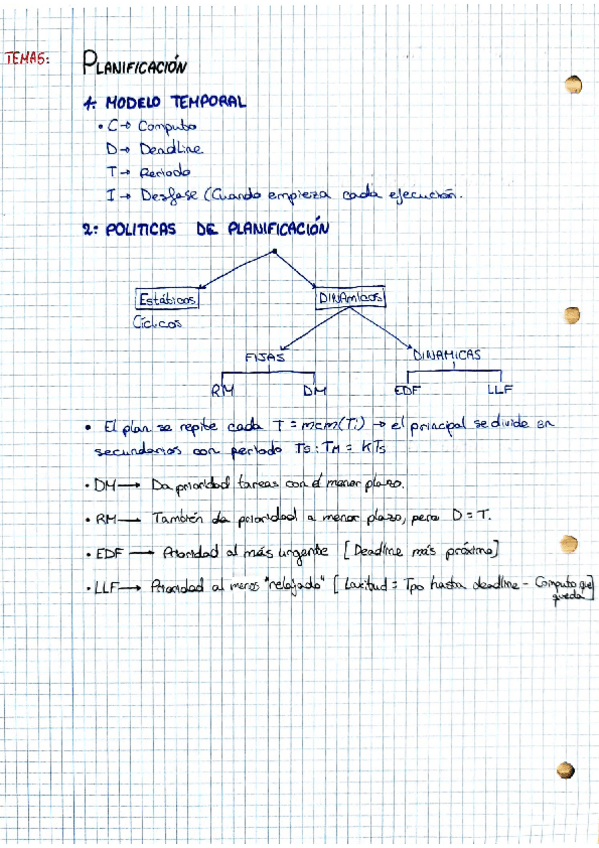 TEMAS:
PLANIFICACIÓN
1: MODELO TEMPORAL
• C → Computo
D → Deadline
T → Periodo
I → Desfase (Cuando empieza cada ejecución.
2: POLITICAS DE PLANIFICACIÓN
Estáticos DINAmicos
Cíclicos
FIJAS DINAMICAS
RM DM EDF LLF
• El plan se repite cada T = mcm(Ti) → el principal se divide en
secundarios con periodo Ts : TM = KTs
• DM → Da prioridad tareas con el menor plazo.
• RM → También da prioridad a menor plazo, pero D = T.
• EDF → Prioridad al más urgente [Deadline más próximo]
• LLF → Prioridad al menos "relajado" [Laxitud = Tpo hasta deadline - Computo que
queda]